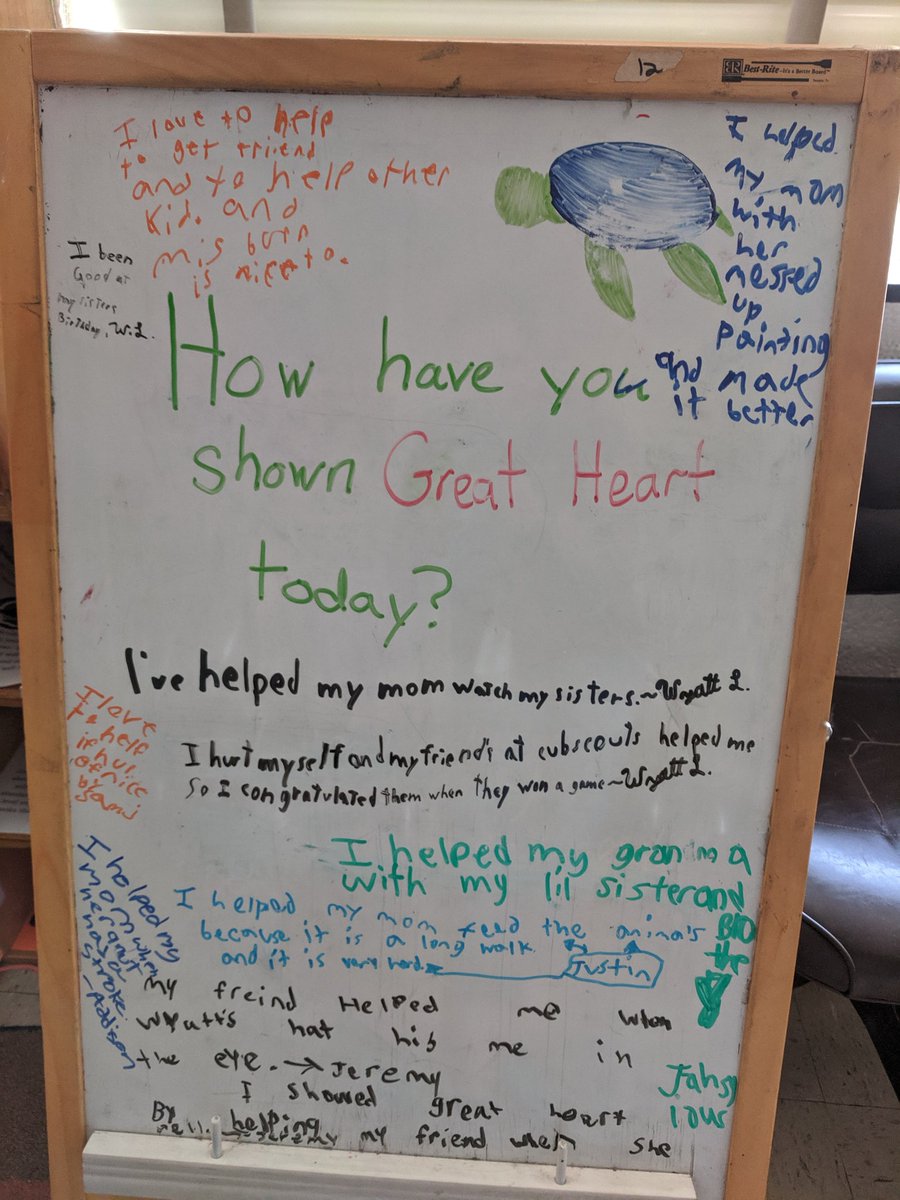 12
Best-Rite - It's a Better Board
I love to help
to get friend
and to help other
Kid. and
mis
is nice to.
I helped
my mom
with
her
messed
up
painting
and made
it better
I been
Good at
my sisters
Birthday, W.L.
How have you
shown Great Heart
today?
I've helped my mom watch my sisters. ~Wyatt L.
I hurt myself and my friend's at cubscouts helped me
So I congratulated them when they won a game ~Wyatt L.
I love
to help
if hur
of nice
by
sami
I helped my granma
with my lil sister and
BIO
the
Jahsy
lous
I helped my mom feed the animals
because it is a long walk
and it is very hard
Justin
I holped my
mom when
her aunt
had a
stroke.
-Addison
my freind Helped me when
Wyatt's hat his me in
the eye. → Jeremy
I showed great heart
By helping my friend when she